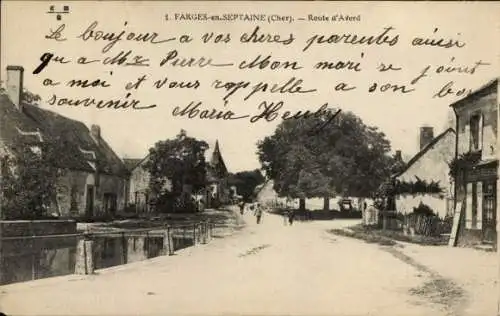 1. FARGES-en-SEPTAINE (Cher). - Route d'Avord
Le bonjour a vos cheres parentes ainsi
qu a Mr Pierre Mon mari se joint
a moi et vous rappelle a son bon
souvenir Maria